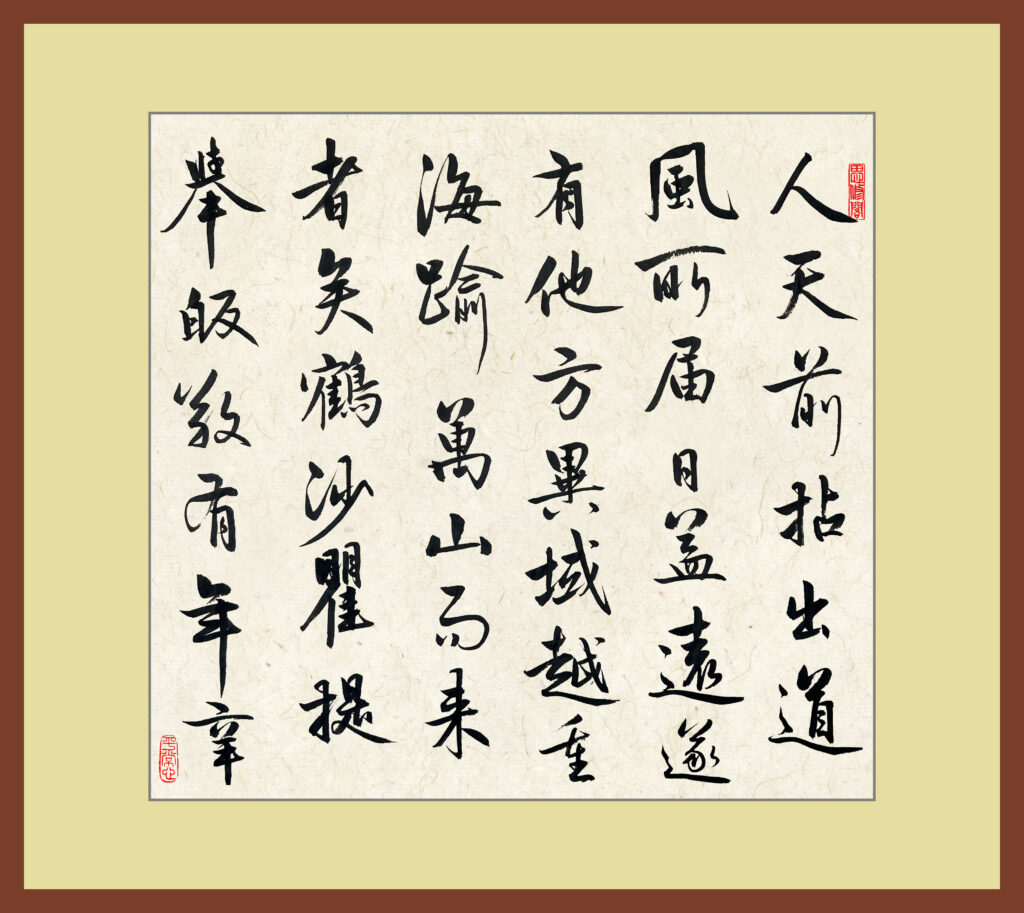 思修閣
人天前拈出道
風所届日益遠遂
有他方異域越重
海踰萬山而来
者矣鶴沙瞿提
舉皈敬有年辛
平常心